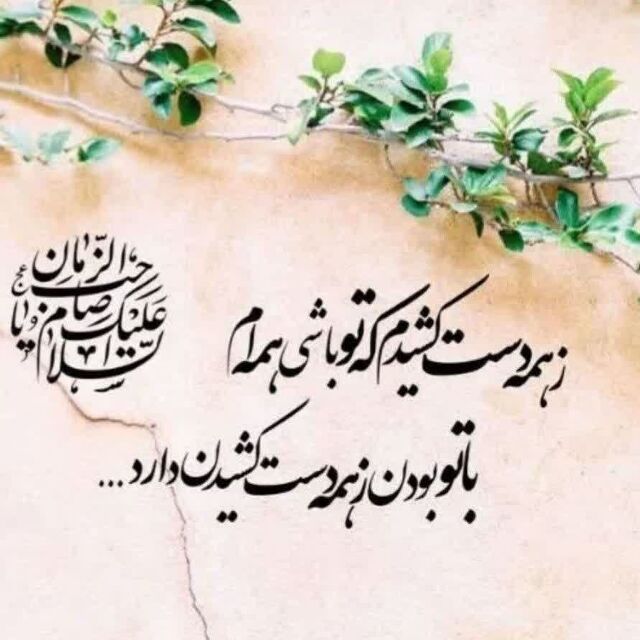 ز همه دست کشیدم که تو باشی همه ام
با تو بودن ز همه دست کشیدن دارد ...
السلام علیک یا صاحب الزمان